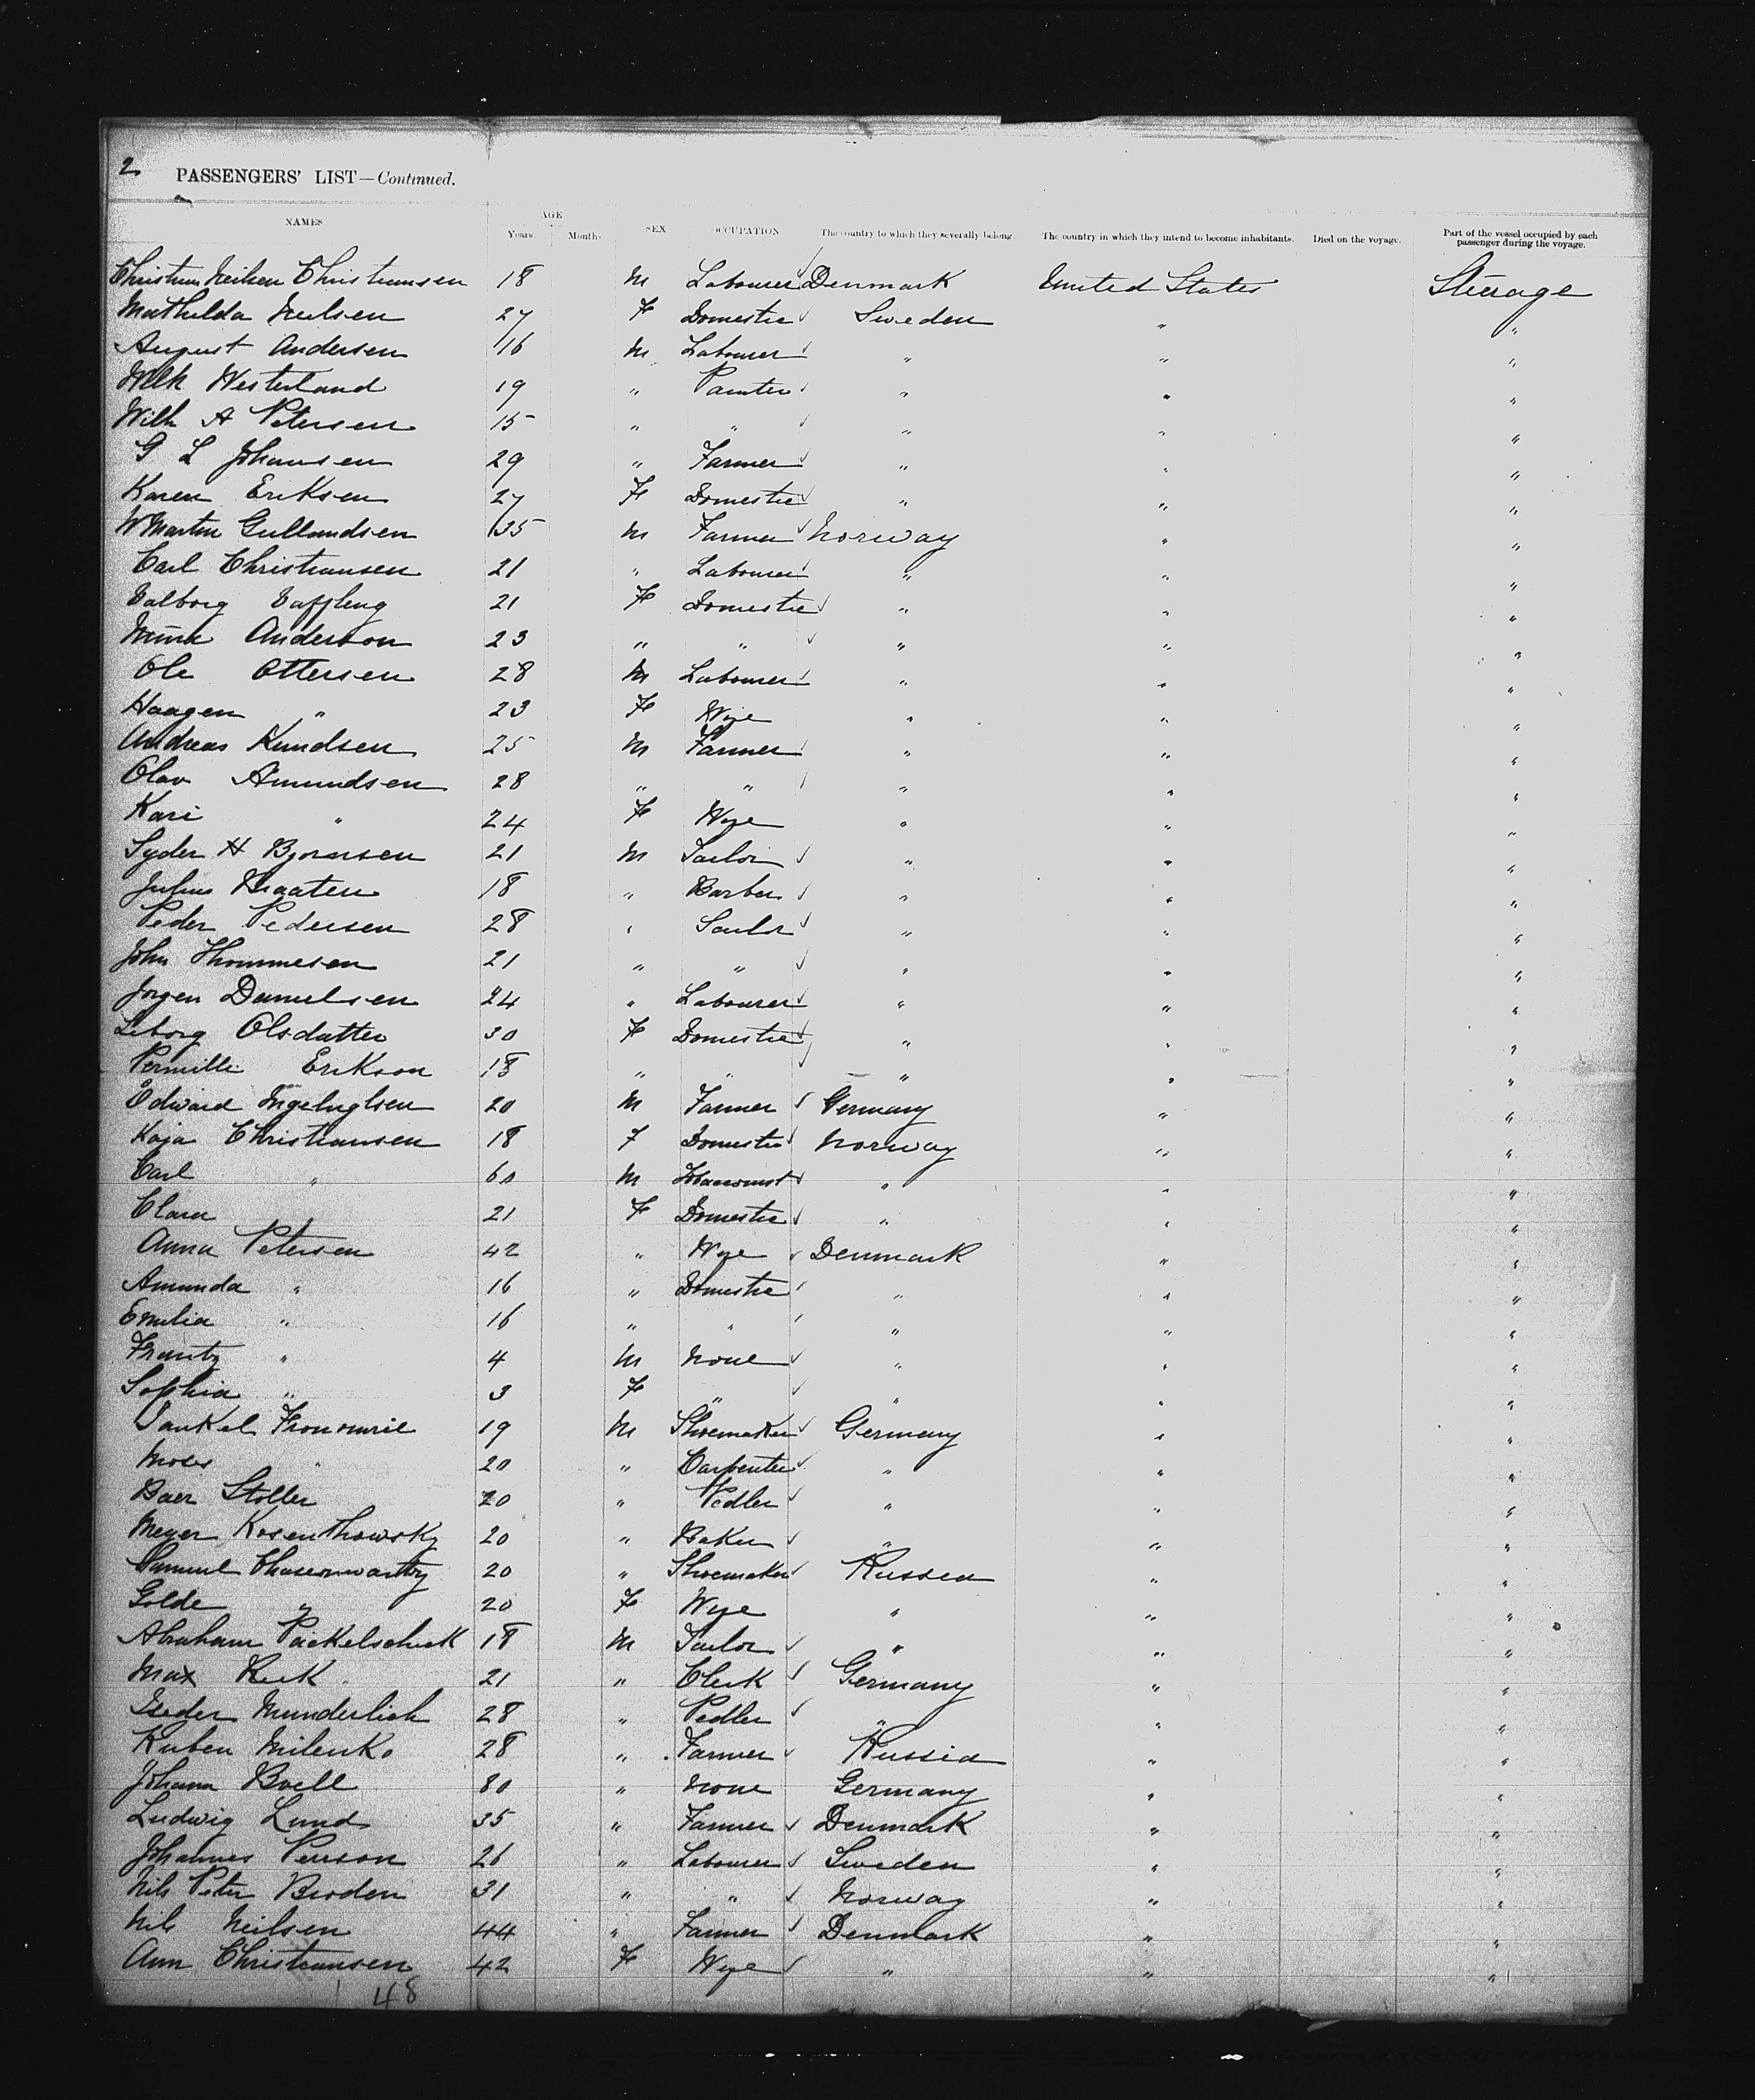 2
PASSENGERS' LIST—Continued.
NAMES AGE Years. Months SEX OCCUPATION The country to which they severally belong. The country in which they intend to become inhabitants. Died on the voyage. Part of the vessel occupied by each passenger during the voyage.
Christian Neilsen Christiansen 18 M Labourer Denmark United States Steerage
Mathilda Neilsen 27 F Domestic Sweden " "
August Andersen 16 M Labourer " " "
Westerland 19 " Painter " " "
Wilh A Petersen 15 " " " " "
G L Johansen 29 " Farmer " " "
Karen Eriksen 27 F Domestic " " "
Martin Gullandsen 35 M Farmer Norway " "
Carl Christiansen 21 " Labourer " " "
Valborg 21 F Domestic " " "
Anderson 23 " " " " "
Ole Ottersen 28 M Labourer " " "
Haagen " 23 F Wife " " "
Andreas Knudsen 25 M Farmer " " "
Olav Amundsen 28 " " " " "
Kari " 24 F Wife " " "
Syder H Bjornsen 21 M Sailor " " "
Julius Braaten 18 " Barber " " "
Peder Pedersen 28 " Sailor " " "
John Thommesen 21 " " " " "
Jorgen Danielsen 24 " Labourer " " "
Olsdatter 30 F Domestic " " "
Pernille Erikson 18 " " " " "
Edward 20 M Farmer Germany " "
Kaja Christiansen 18 F Domestic Norway " "
Carl " 60 M Tobacconist " " "
Clara 21 F Domestic " " "
Anna Petersen 42 " Wife Denmark " "
Amunda " 16 " Domestic " " "
Emilia " 16 " " " " "
Frantz " 4 M None " " "
Sophia " 3 F " " " "
19 M Shoemaker Germany " "
Moses " 20 " Carpenter " " "
Baer Stoller 20 " Pedler " " "
Meyer 20 " Baker " " "
Samuel 20 " Shoemaker Russia " "
Golde " 20 F Wife " " "
Abraham Packelschick 18 M Tailor " " "
Max 21 " Clerk Germany " "
Munderlich 28 " Pedler " " "
Ruben Milenko 28 " Farmer Russia " "
Johann Boell 80 " None Germany " "
Ludwig Lund 35 " Farmer Denmark " "
Johannes Persson 26 " Labourer Sweden " "
Nils Peter Broden 31 " " Norway " "
Nils Neilsen 44 " Farmer Denmark " "
Ann Christiansen 42 F Wife " " "
48